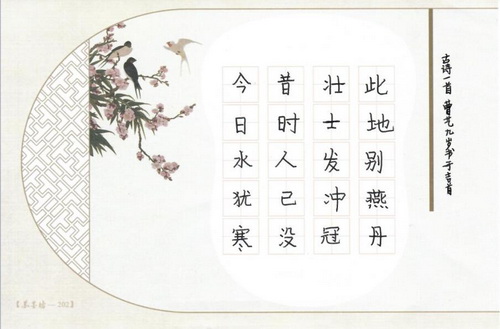 此地别燕丹
壮士发冲冠
昔时人已没
今日水犹寒
古诗一首 曹艺九岁书于吉首